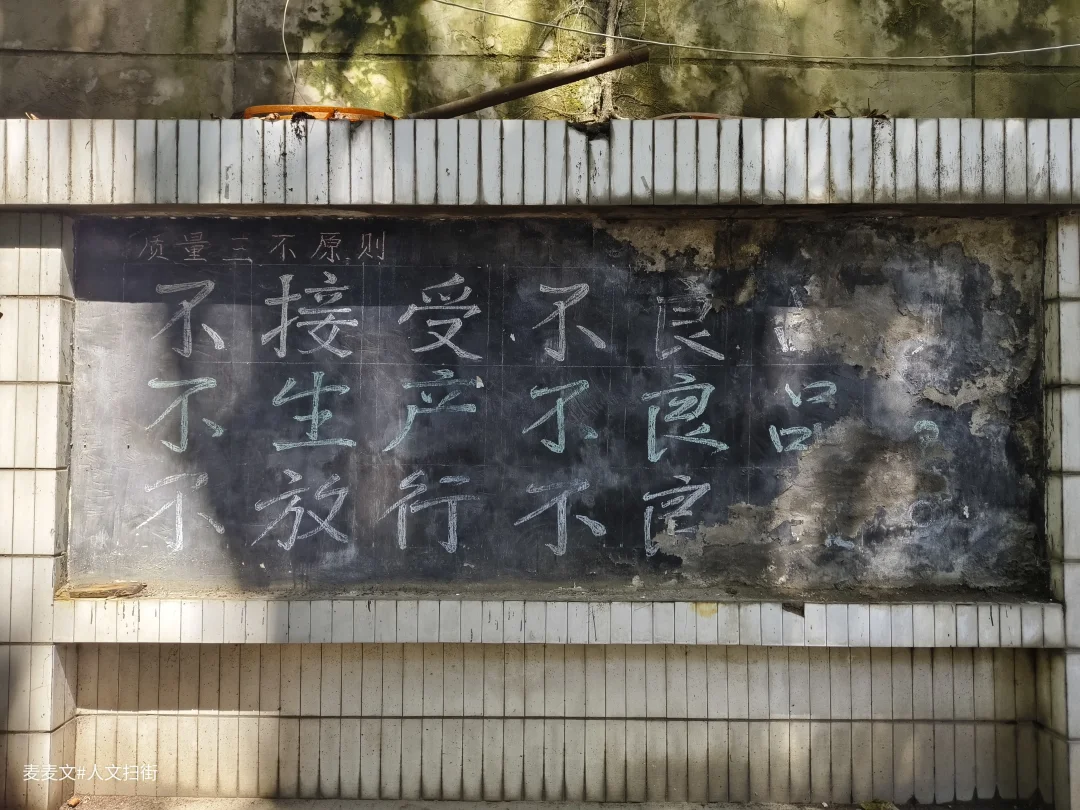 质量三不原则
不接受不良
不生产不良品。
不放行不良
麦麦文#人文扫街